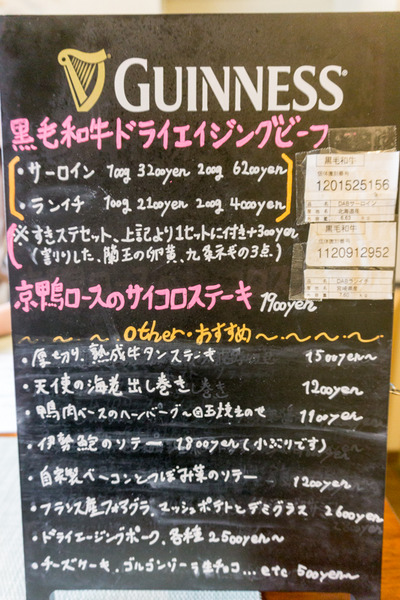 GUINNESS
黒毛和牛ドライエイジングビーフ
・サーロイン 100g 3200yen 200g 6200yen
・ランイチ 100g 2200yen 200g 4000yen
※すきステセット、上記より1セットに付き+300yen
(割りした、蘭王の卵黄、九条ネギの3点)
黒毛和牛
1201525156
DABサーロイン
北海道産
黒毛和牛
1120912952
DABランイチ
宮崎県産
京鴨ロースのサイコロステーキ 1900yen
other・おすすめ
・厚切り、熟成牛タンステーキ 1500yen〜
・天使の海老出し巻き 1200yen
・鴨肉ベースのハンバーグ〜目玉焼きのせ 1100yen
・伊勢鮑のソテー 1800yen(小ぶりです)
・自家製ベーコンとつぼみ菜のソテー 1200yen
・フランス産フォアグラ、マッシュポテトとデミグラス 2600yen
・ドライエージングポーク、各種 2500yen〜
・チーズケーキ、ゴルゴンゾーラ生チョコ...etc 500yen〜